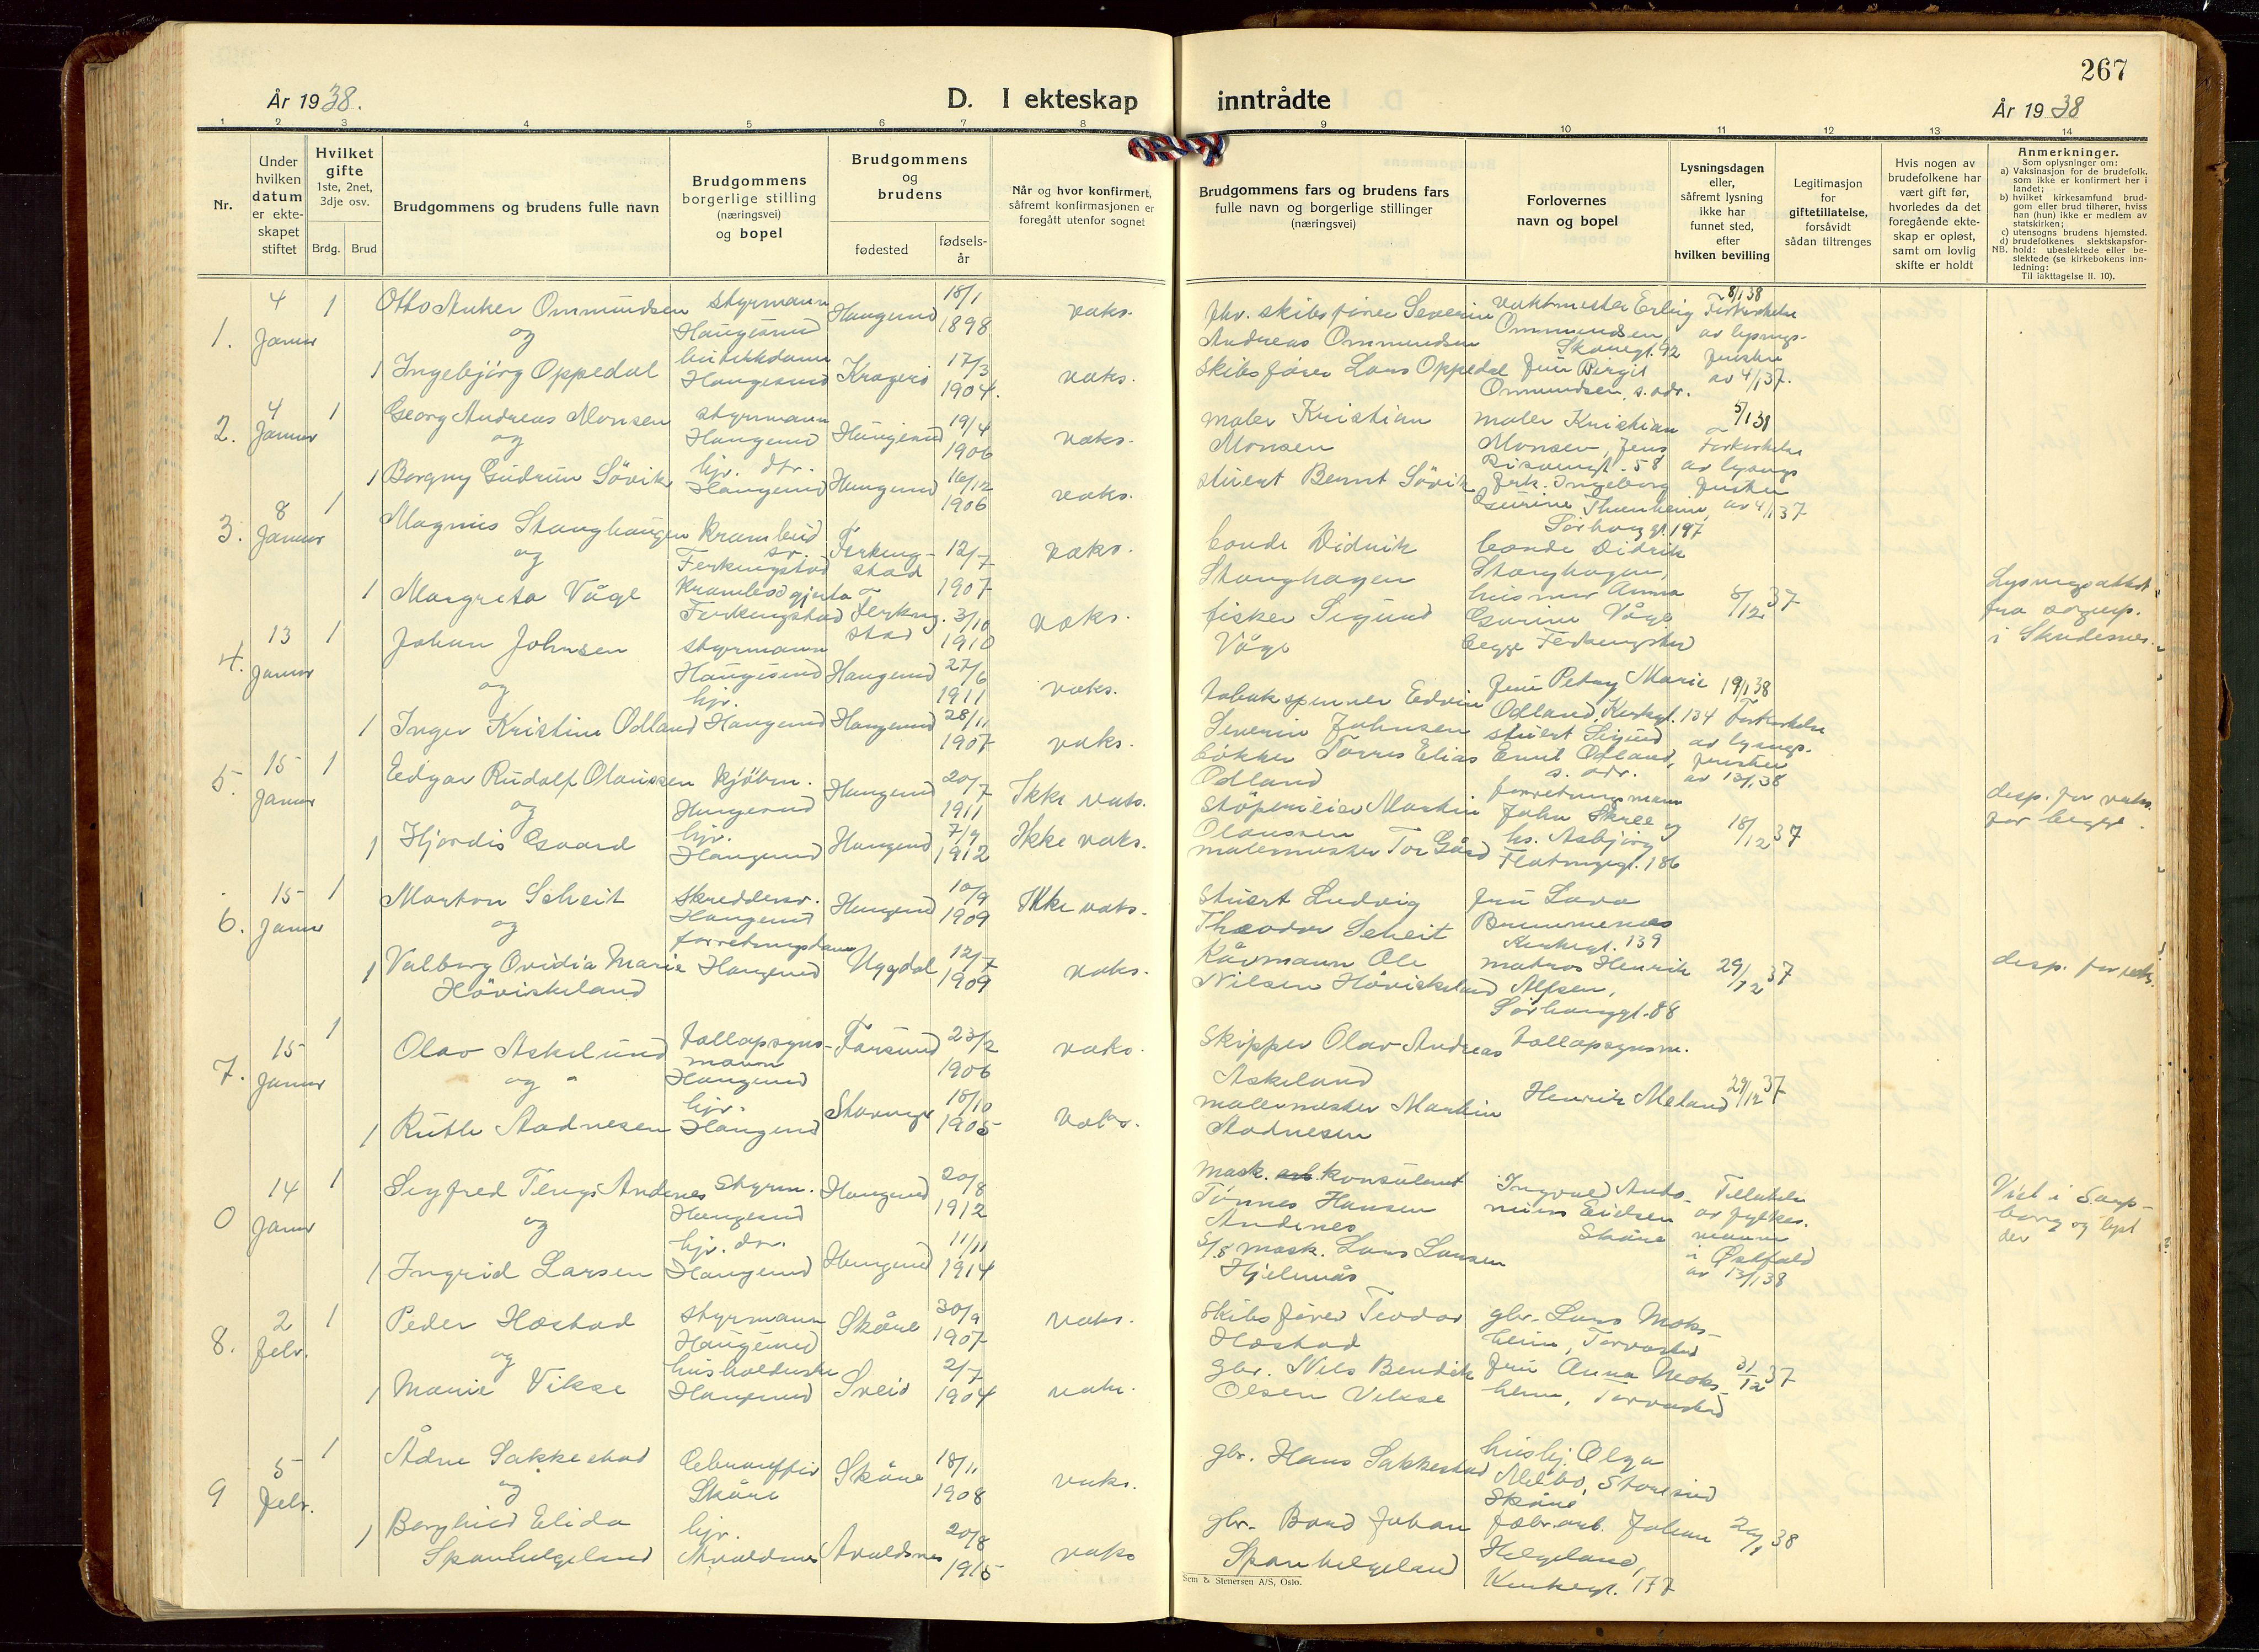 267
År 1938.
D. I ekteskap inntrådte
År 1938
1 2 3 4 5 6 7 8 9 10 11 12 13 14
Nr.
Under hvilken datum er ekteskapet stiftet
Hvilket gifte 1ste, 2net, 3dje osv.
Brdg. Brud
Brudgommens og brudens fulle navn
Brudgommens borgerlige stilling (næringsvei) og bopel
Brudgommens og brudens
fødested
fødselsår
Når og hvor konfirmert, såfremt konfirmasjonen er foregått utenfor sognet
Brudgommens fars og brudens fars fulle navn og borgerlige stillinger (næringsvei)
Forlovernes navn og bopel
Lysningsdagen eller, såfremt lysning ikke har funnet sted, efter hvilken bevilling
Legitimasjon for giftetillatelse, forsåvidt sådan tiltrenges
Hvis nogen av brudefolkene har vært gift før, hvorledes da det foregående ekteskap er opløst, samt om lovlig skifte er holdt
Anmerkninger.
Som oplysninger om:
a) Vaksinasjon for de brudefolk, som ikke er konfirmert her i landet;
b) hvilket kirkesamfund brudgom eller brud tilhører, hviss han (hun) ikke er medlem av statskirken;
c) utensogns brudens hjemsted.
d) brudefolkenes slektskapsforhold: ubeslektede eller beslektede (se kirkebokens innledning:
NB.
Til iakttagelse II. 10).
1. 4 Januar 1
Otto Anker Ommundsen
styrmann Haugesund
Haugesund 18/1 1898
vaks.
fhv. skibsfører Severin Andreas Ommundsen
vaktmester Erling Ommundsen Skåregt. 92
8/1 38
av lysnings-
og
1 Ingebjörg Oppedal
Haugesund
Kragerö 17/3 1904.
vaks.
skibsfører Lars Oppedal
fru Birgit Ommundsen, s. adr.
av 4/1 37.
2. 4 Januar 1
Georg Andreas Monsen
styrmann Haugesund
Haugesund 19/4 1906
vaks.
maler Kristian Monsen
maler Kristian Monsen, Jens Risøengt. 58
5/1 38
og
1 Borgny Gudrun Sövik
hjv. dtr. Haugesund
Haugesund 16/12 1906
vaks.
stuert Bernt Sövik
frk. Ingeborg
Sörhauggt. 197
av 4/1 37
3. 8 Januar 1
Magnus Stanghaugen
Ferkingstad
Ferkingstad 12/7 1907
vaks.
bonde Didrik Stanghagen
bonde Didrik Stanghagen,
og
1 Margreta Våge
Ferkingstad
Ferkingstad 3/10 1910
vaks.
fisker Sigurd Våge
husmor Anna Gurine Våge
begge Ferkingstad
8/12 37
Lysningsattest fra sognep. i Skudenes.
4. 13 Januar 1
Johan Johnsen
styrmann Haugesund
Haugesund 27/6 1911
vaks.
tobakspinner Edvin Severin Johnsen
fru Petry Marie Odland, Kirkegt. 134
19/1 38
og
1 Inger Kristine Odland
hjv. Haugesund
Haugesund 28/11 1907
vaks.
bökker Torres Elias Odland
stuert Sigurd Emil Odland, s. adr.
av 13/1 38
5. 15 Januar 1
Edgar Rudolf Olaussen
kjöbm. Haugesund
Haugesund 20/7 1911
Ikke vaks.
støperieier Martin Olaussen
forretningsmann John Skree og
desp. for vaks. for begge.
og
1 Hjordis Gaard
hjv. Haugesund
Haugesund 7/9 1912
Ikke vaks.
malermester Tor Gård
hs. Asbjörg
18/12 37
6. 15 Januar 1
Morton Scheit
skreddersv. Haugesund
Haugesund 10/9 1909
Ikke vaks.
stuert Ludvig Theodor Scheit
fru Lava Brummenæs Kirkegt. 139
og
1 Valborg Ovidia Marie Höviskeland
forretningsdame Haugesund
Uggdal 12/7 1909
vaks.
Kårmann Ole Nilsen Höviskeland
matros Henrik Alfsen, Sörhauggt. 88
29/12 37
desp. for vaks.
7. 15 Januar 1
Olav Askelund
tollopsynsmann Haugesund
Farsund 23/2 1906
vaks.
skipper Olav Andreas Askeland
tollopsynsm. Henrik Meland
29/12 37
og
1 Ruth Aadnesen
hjv. Haugesund
Stavanger 18/10 1905
vaks.
malermester Martin Aadnesen
0 14 Januar 1
Sigfred Tengs Andenes
styrm. Haugesund
Haugesund 20/8 1912
mask. konsulent Tönnes Hansen Andenes
Ingvald Antonius Eielsen Skåre
Tillatelse av fylkesmann i Østfold av 13/1 38
Viet i Sarpborg og lyst der
og
1 Ingrid Larsen
hjv. dtr. Haugesund
Haugesund 11/11 1914
mask. Lars Larsen Hjelmås
8. 2 Febr. 1
Peder Hæstad
styrmann Haugesund
Skåre 30/9 1907
vaks.
skibsfører Teodor Hæstad
gbr. Lars Moksheim, Torvastad
og
1 Marie Vikse
husholderske Haugesund
Sveio 2/7 1904
vaks.
gbr. Nils Bendik Olsen Vikse
fru Anna Moksheim, Torvastad
31/12 37
9 5 Febr. 1
Ådne Sakkestad
Skåre
Skåre 18/11 1908
vaks.
gbr. Hans Sakkestad
husbj. Olga Melbo, Storesund Skåre
og
1 Borghild Elida Spanhelgeland
hjv. Avaldsnes
Avaldsnes 20/8 1915
vaks
gbr. Bård Johan Spanhelgeland
fabr.arb. Johan Helgeland, Kirkegt. 177
20/1 38
Sem & Stenersen A/S, Oslo.